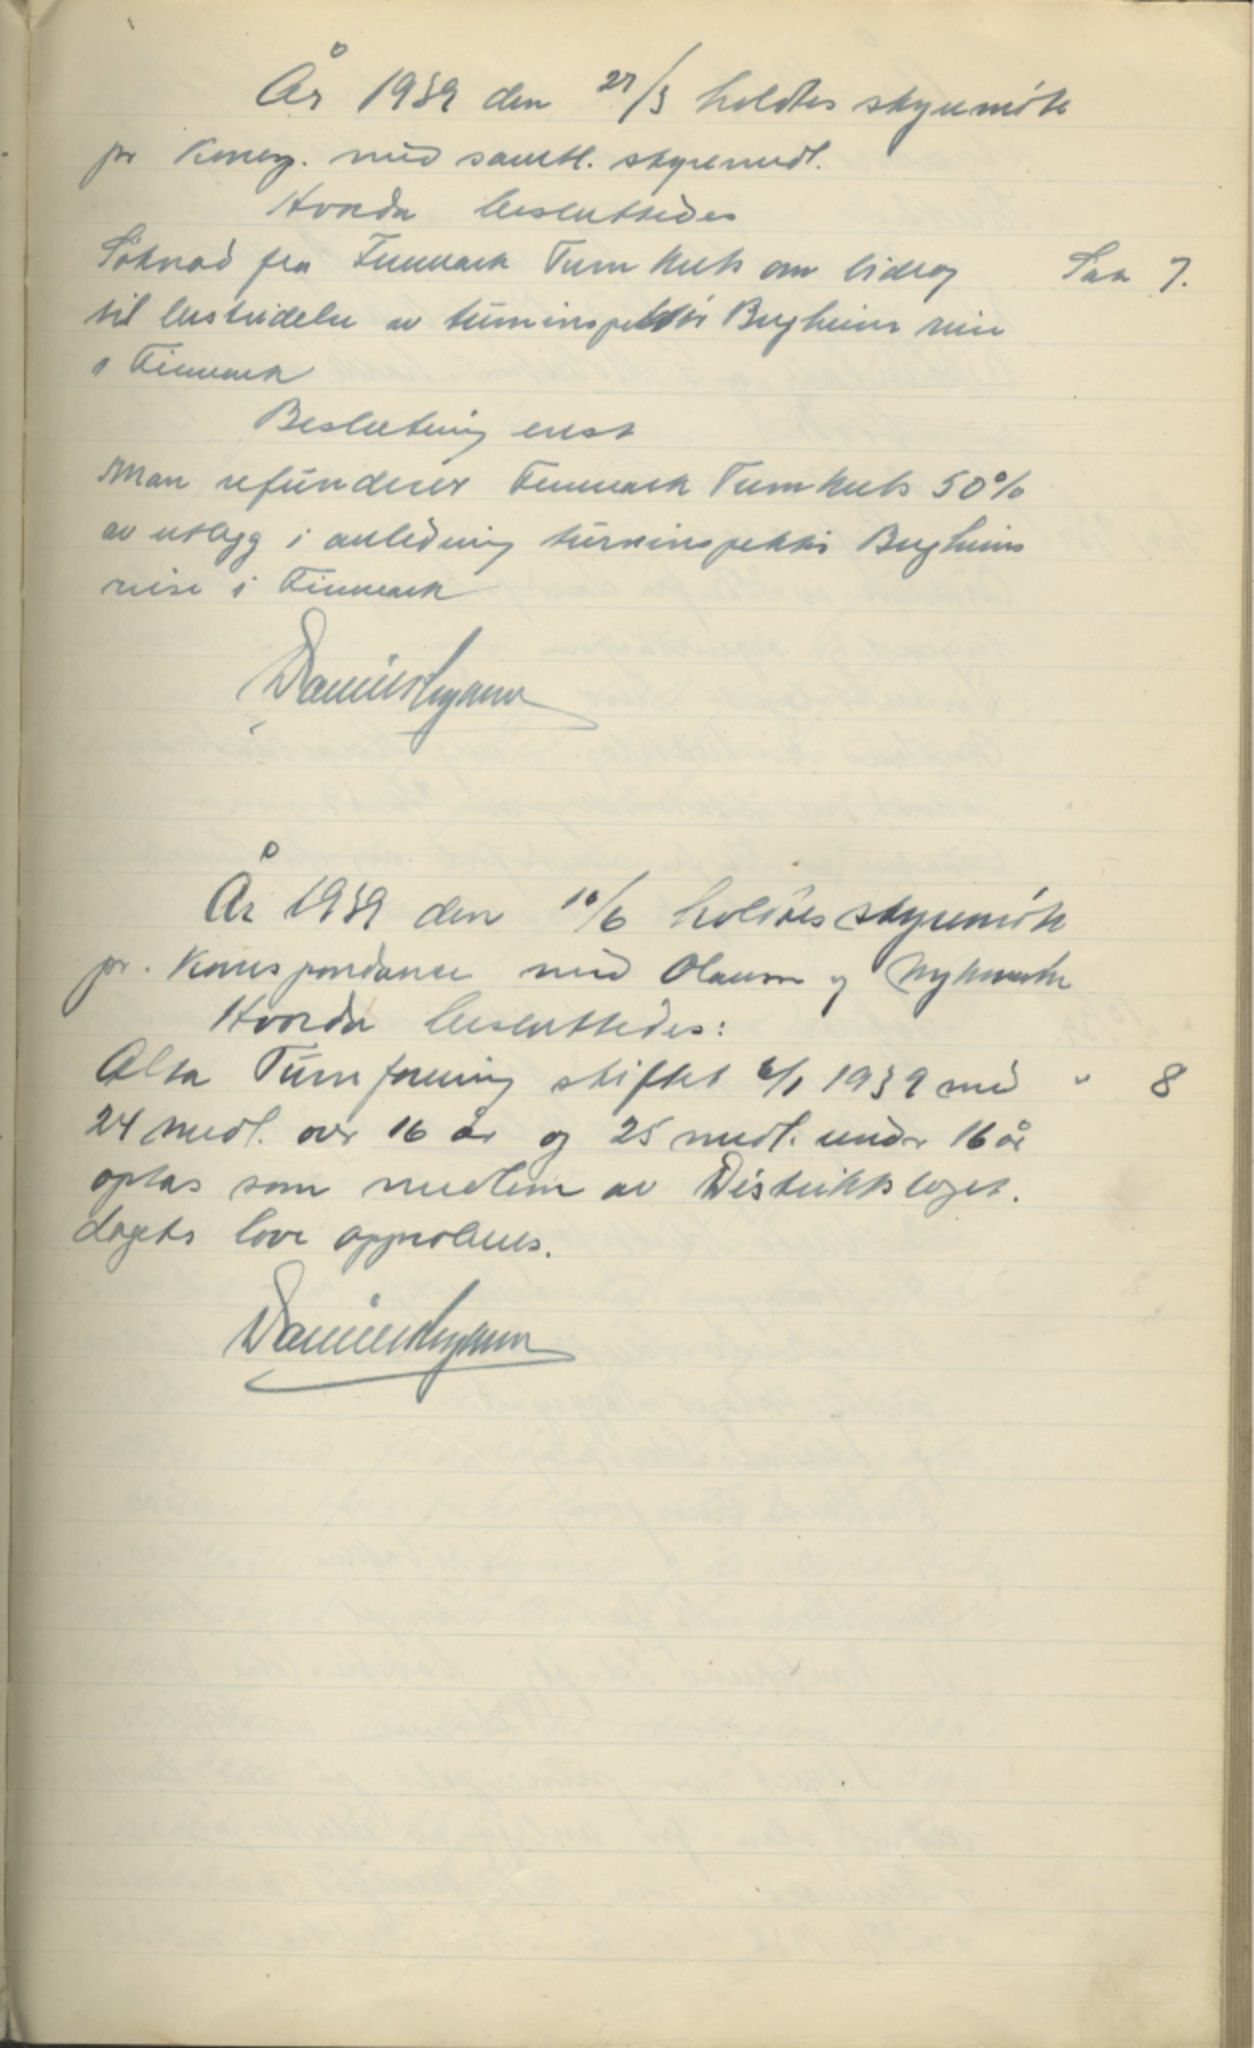 År 1939 den 27/3 holdtes styremöte
pr Korresp. med samtl. styremedl.
Hvorda besluttedes
Söknad fra Finnmark Turnkrets om bidrag Sak 7.
til bestridelse av turninspektör Bergheims reise
i Finnmark
Beslutning enst
Man refunderer Finnmark Turnkrets 50%
av utlegg i anledning turninspektör Bergheims
reise i Finnmark
År 1939 den 10/6 holdtes styremöte
pr. Korrespondanse med Olausen og
Hvorda besluttedes:
Alta Turnforening stiftet 6/1 1939 med " 8
24 medl. over 16 år og 25 medl. under 16 år
optas som medlem av Distriktslaget.
Lagets love approberes.